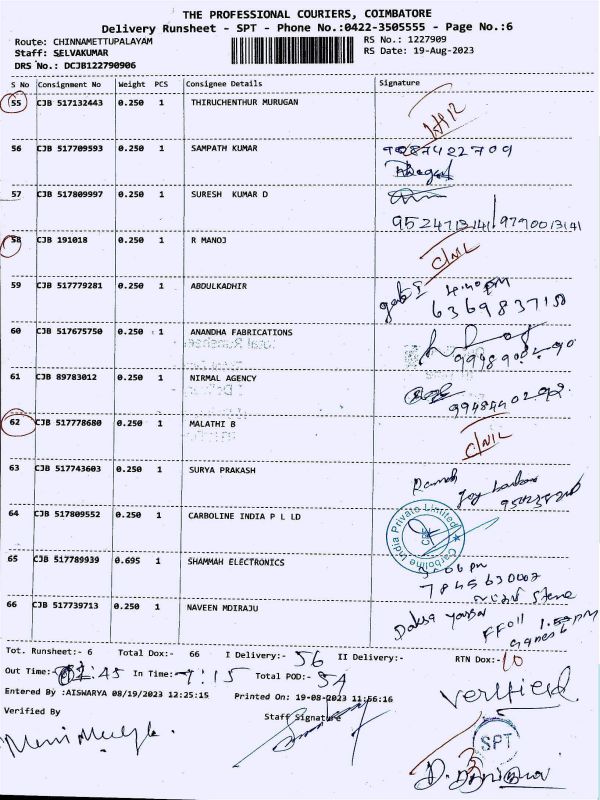 THE PROFESSIONAL COURIERS, COIMBATORE
Delivery Runsheet - SPT - Phone No.:0422-3505555 - Page No.:6
Route: CHINNAMETTUPALAYAM
RS No.: 1227909
Staff: SELVAKUMAR
RS Date: 19-Aug-2023
DRS No.: DCJB122790906
S No Consignment No Weight PCS Consignee Details Signature
55 CJB 517132443 0.250 1 THIRUCHENTHUR MURUGAN
56 CJB 517709593 0.250 1 SAMPATH KUMAR
57 CJB 517809997 0.250 1 SURESH KUMAR D
9524713141 9790013141
58 CJB 191018 0.250 1 R MANOJ C/NIL
59 CJB 517779281 0.250 1 ABDULKADHIR 4.40 pm
60 CJB 517675750 0.250 1 ANANDHA FABRICATIONS
61 CJB 89783012 0.250 1 NIRMAL AGENCY
62 CJB 517778680 0.250 1 MALATHI B C/NIL
63 CJB 517743603 0.250 1 SURYA PRAKASH
64 CJB 517809552 0.250 1 CARBOLINE INDIA P L LD
Carboline India Private Limited
CBE
65 CJB 517789939 0.695 1 SHAMMAH ELECTRONICS
7845630007
66 CJB 517739713 0.250 1 NAVEEN MDIRAJU
Tot. Runsheet:- 6 Total Dox:- 66 I Delivery:- 56 II Delivery:- RTN Dox:- 10
Out Time:- In Time:- 7:15 Total POD:- 54
Entered By :AISWARYA 08/19/2023 12:25:15 Printed On: 19-08-2023 11:56:16
verified
Verified By
Staff Signature
SPT